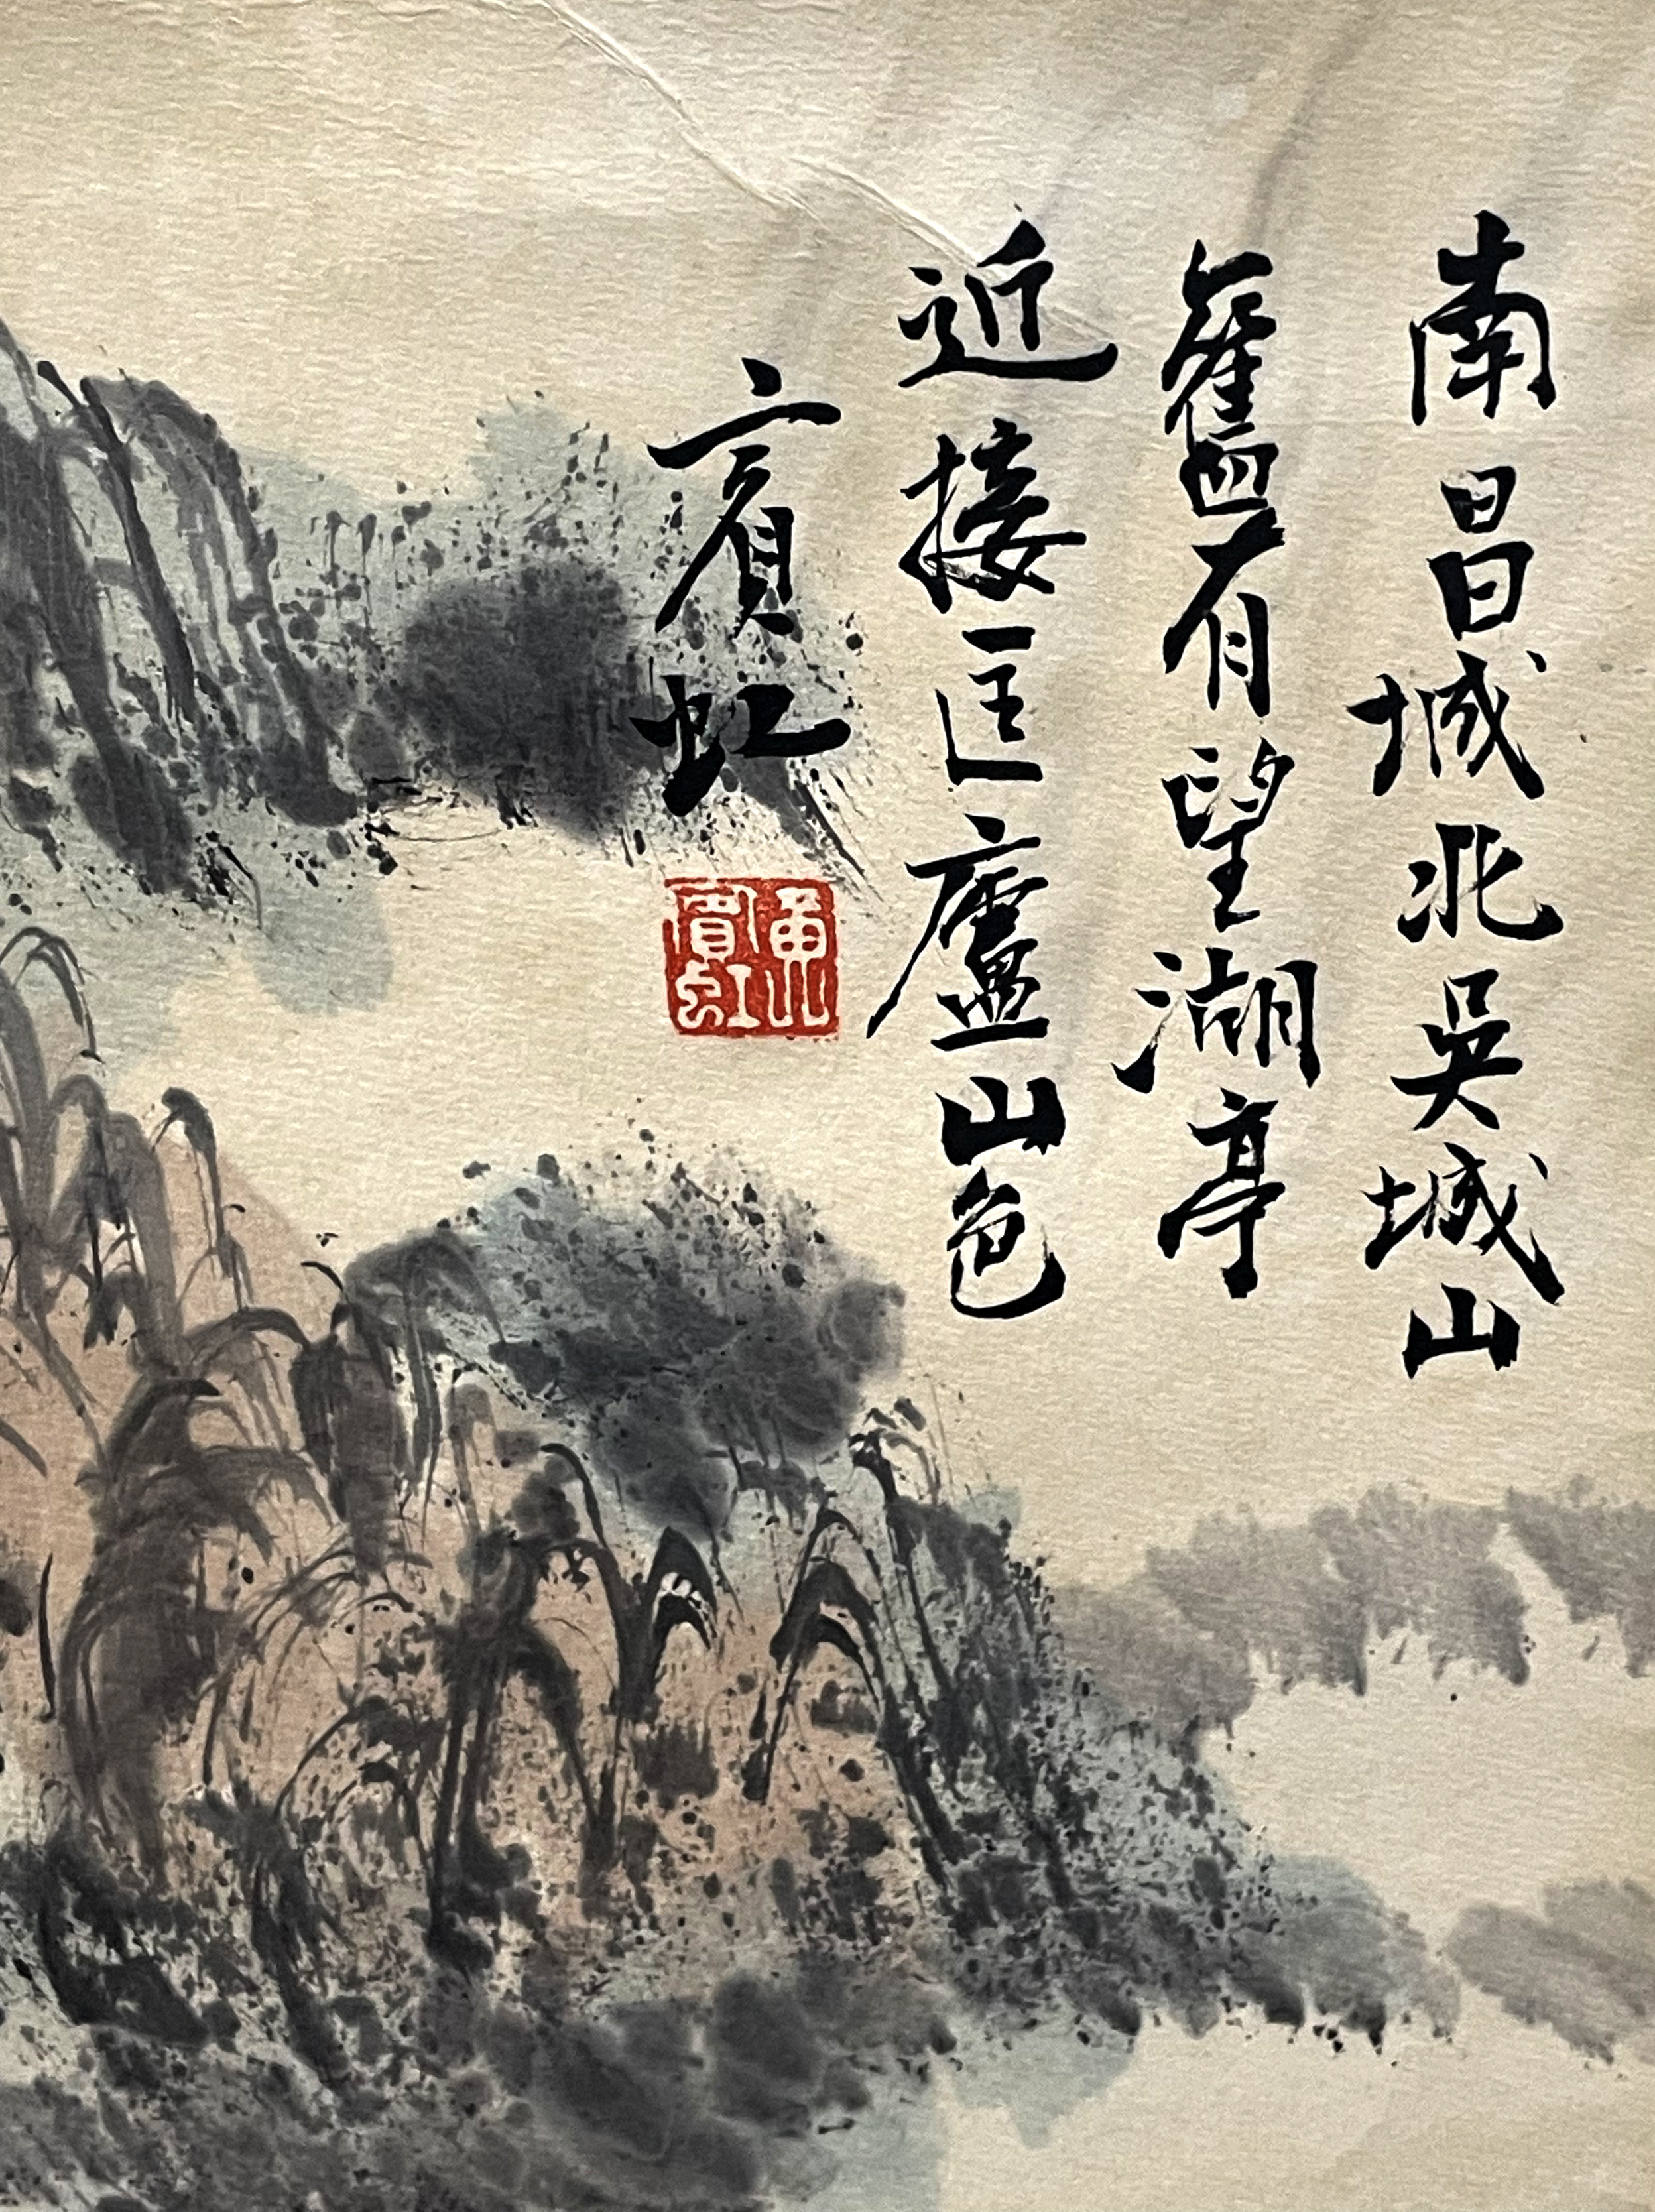 南昌城北吳城山
舊有望湖亭
近接匡廬山色
賓虹
黃賓虹